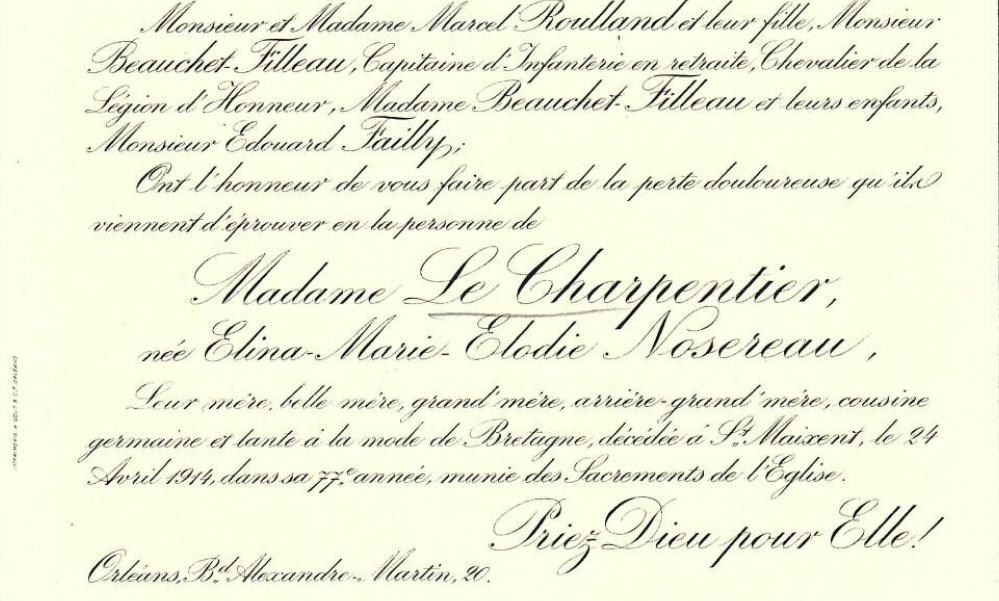 Monsieur et Madame Marcel Roulland et leur fille, Monsieur
Beauchet-Filleau, Capitaine d'Infanterie en retraite, Chevalier de la
Légion d'Honneur, Madame Beauchet-Filleau et leurs enfants,
Monsieur Edouard Failly;
Ont l'honneur de vous faire part de la perte douloureuse qu'ils
viennent d'éprouver en la personne de
Madame Le Charpentier,
née Elina-Marie-Elodie Nosereau,
Leur mère, belle mère, grand'mère, arrière-grand'mère, cousine
germaine et tante à la mode de Bretagne, décédée à St. Maixent, le 24
Avril 1914, dans sa 77e. année, munie des Sacrements de l'Eglise.
Priez Dieu pour Elle!
Orléans, Bd. Alexandre-Martin, 20.